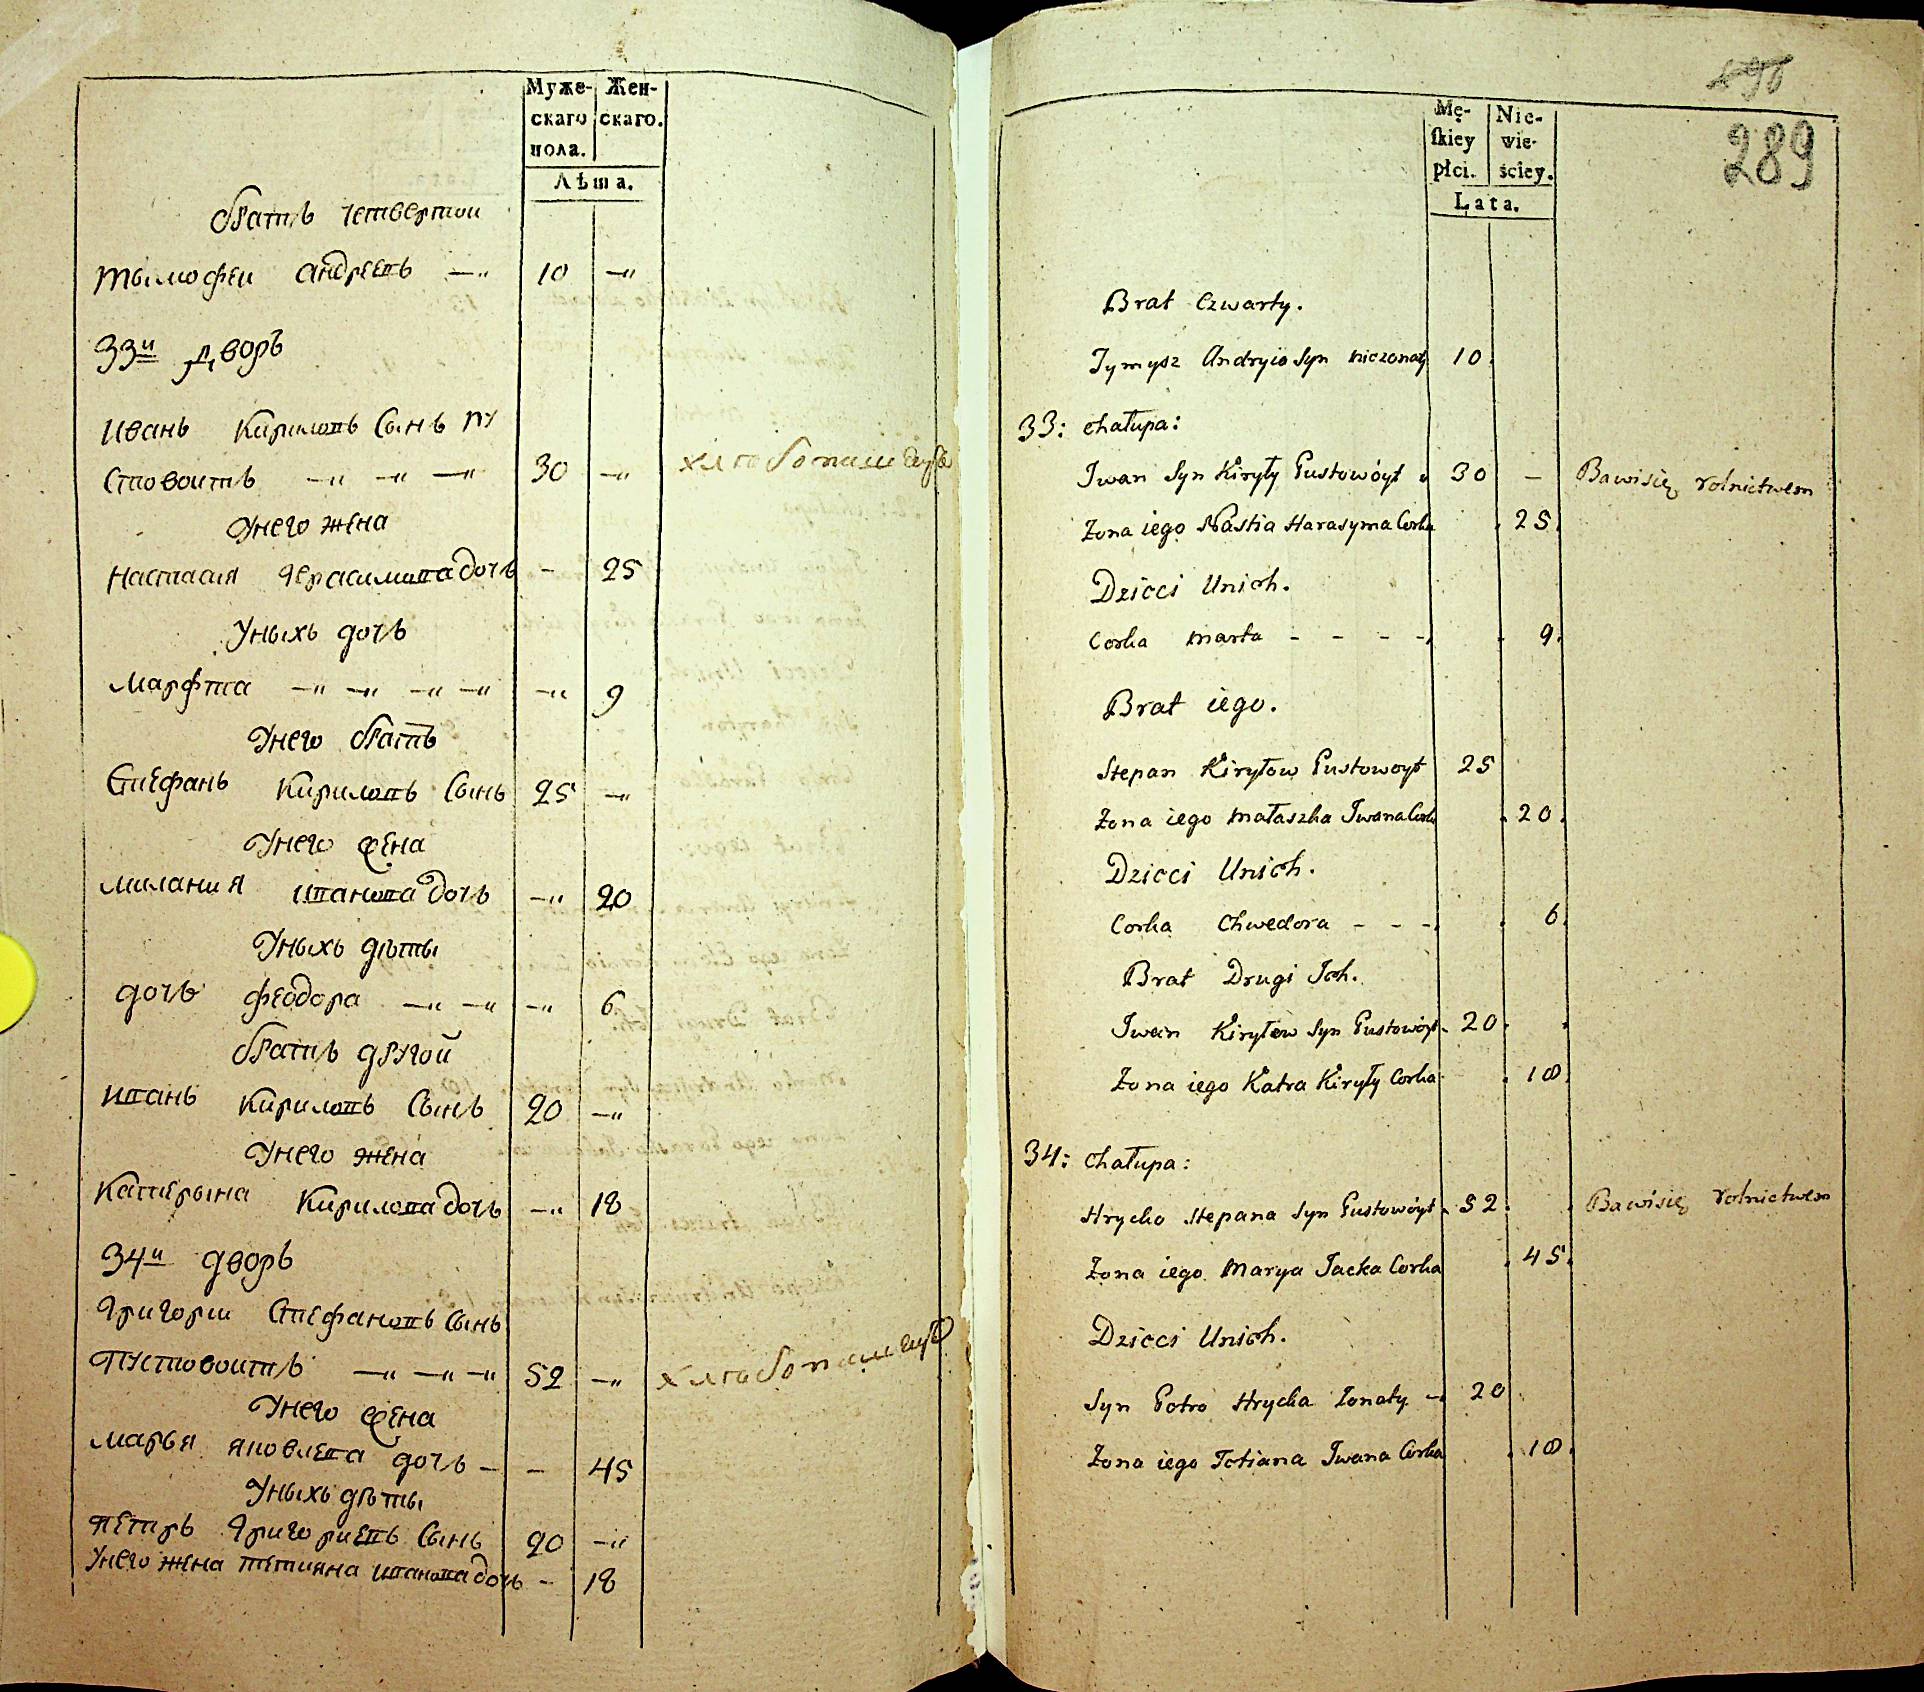 Муже-
скаго
пола.
Жен-
скаго.
Лѣта.
братъ четвертои
тымофеи андреевъ — 10 —
33и дворъ
Иванъ Кириловъ сынъ пу
стовоитъ — — — 30 — хлѣбопашецъ
Унего жена
настасия Герасимова дочъ - 25
Уныхъ дочъ
Марфта — — — — — 9
Унего братъ
Стефанъ Кириловъ сынъ 25 —
Унего жена
милания иванова дочъ — 20
Уныхъ дѣты
дочъ феодора — — — 6
братъ другой
иванъ Кириловъ сынъ 20 —
Унего жена
Катерына Кирилова дочъ — 18
34и дворъ
Григории Стефановъ сынъ
Пустовоитъ — — — 52 — хлѣбопашецъ
Унего жена
марья яковлева дочъ - - 45
Уныхъ дѣты
петръ Григориевъ сынъ 20 —
Унего жена тетияна иванова дочъ - 18
289
Mę-
skiey
płci.
Nie-
wie-
ściey.
Lata.
Brat Czwarty.
Tymysz Andryia Syn nieżonaty 10.
33: chałupa:
Iwan Syn Kiryły Pustowóyt 30 — Bawisię rolnictwem
Żona iego Nastia Harasyma Corka 25.
Dzieci Unich.
Corka Marta - - - - 9.
Brat iego.
Stepan Kiryłow Pustowoyt 25
Żona iego Małaszka Iwana Corka 20.
Dzieci Unich.
Corka Chwedora - - - 6.
Brat Drugi Ich.
Iwan Kiryłow Syn Pustowóyt 20.
Żona iego Katra Kiryły Corka 18.
34: Chałupa:
Hryćko Stepana Syn Pustowóyt 52. Bawisię rolnictwem
Żona iego Marya Jacka Corka 45.
Dzieci Unich.
Syn Petro Hryćka Żonaty — 20
Żona iego Tetiana Iwana Corka 18.